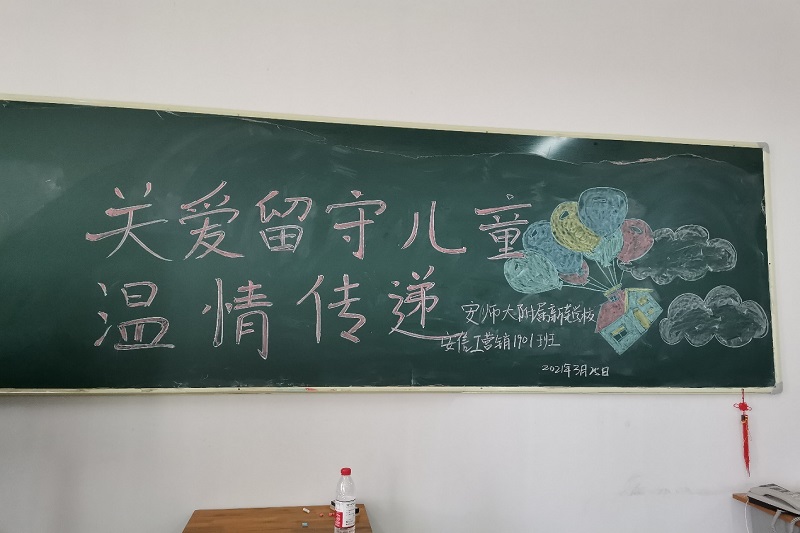 关爱留守儿童
温情传递
安师大附属新芜学校
安信工营销1901班
2021年3月25日